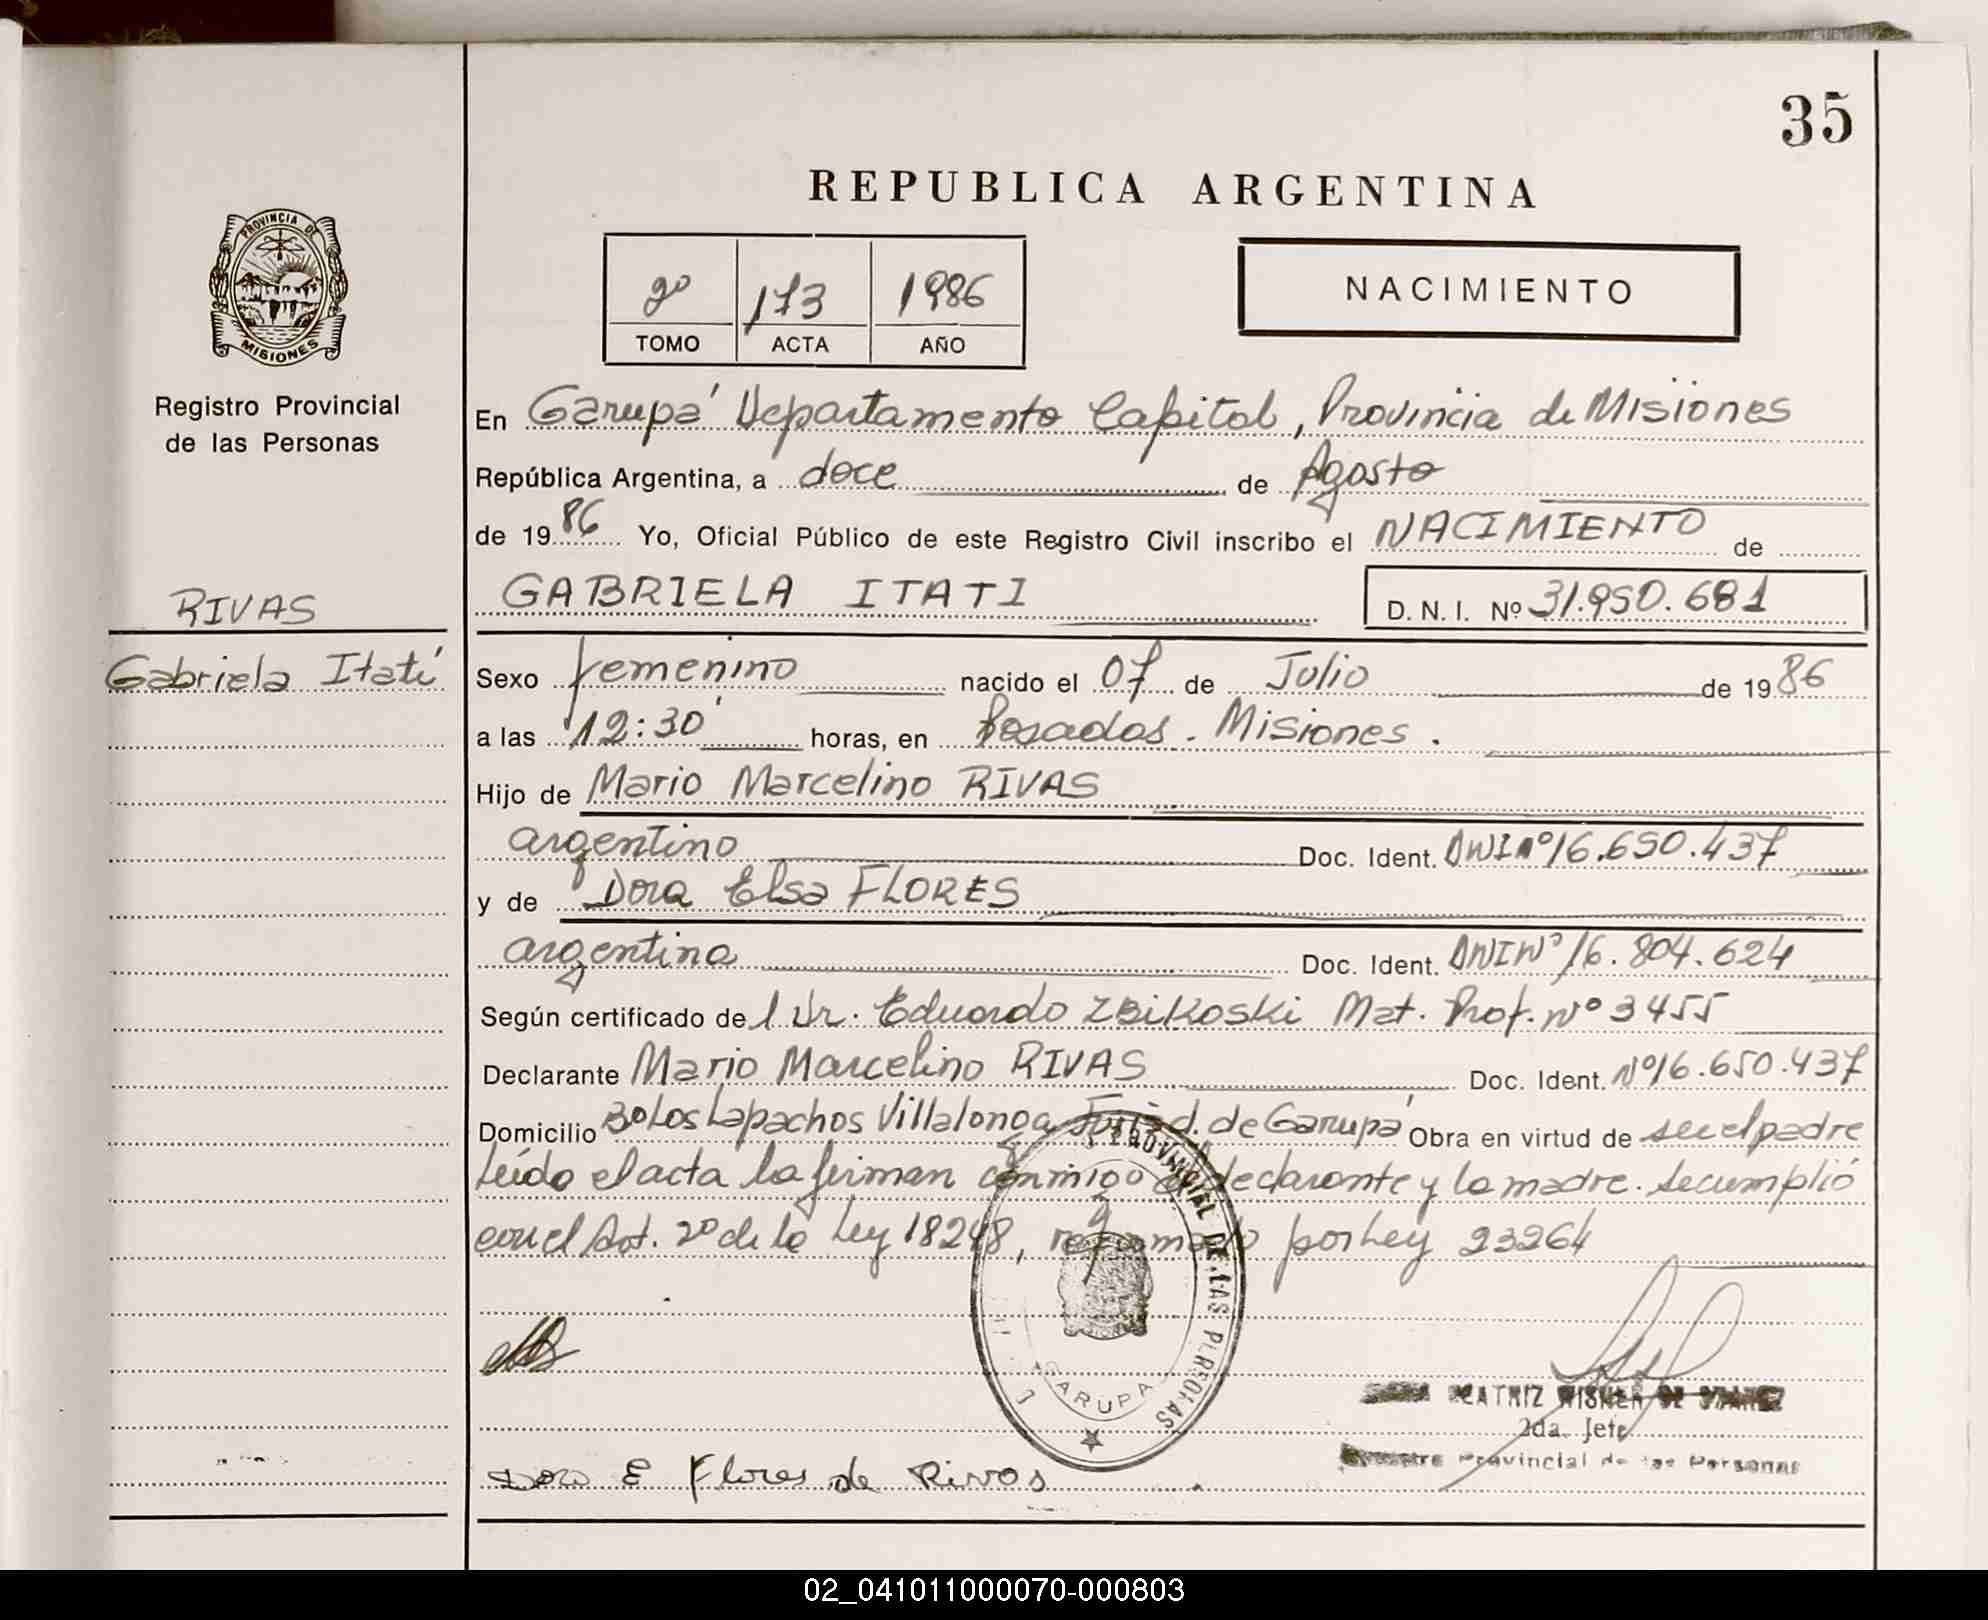 35
REPUBLICA ARGENTINA
PROVINCIA DE
MISIONES
2º 173 1986
TOMO ACTA AÑO
NACIMIENTO
Registro Provincial
de las Personas
RIVAS
Gabriela Itatí
En Garupá Departamento Capital, Provincia de Misiones
República Argentina, a doce de Agosto
de 1986 Yo, Oficial Público de este Registro Civil inscribo el NACIMIENTO de
GABRIELA ITATI D. N. I. Nº 31.950.681
Sexo femenino nacido el 07 de Julio de 1986
a las 12:30 horas, en Posadas. Misiones.
Hijo de Mario Marcelino RIVAS
argentino Doc. Ident. DNI Nº 16.650.437
y de Dora Elsa FLORES
argentina Doc. Ident. DNI Nº 16.804.624
Según certificado del Dr. Eduardo ZBIKOSKI Mat. Prof. Nº 3455
Declarante Mario Marcelino RIVAS Doc. Ident. Nº 16.650.437
Domicilio Bº Los Lapachos Villalonga de Garupá Obra en virtud de ser el padre
Leído el acta la firman conmigo el declarante y la madre. Se cumplió
con el Art. 2º de la Ley 18248, reformado por Ley 23264
PROVINCIAL DE LAS PERSONAS
GARUPA
BEATRIZ WISNER DE
2da. Jefe
Provincial de las Personas
Dora E Flores de Rivas
02_041011000070-000803